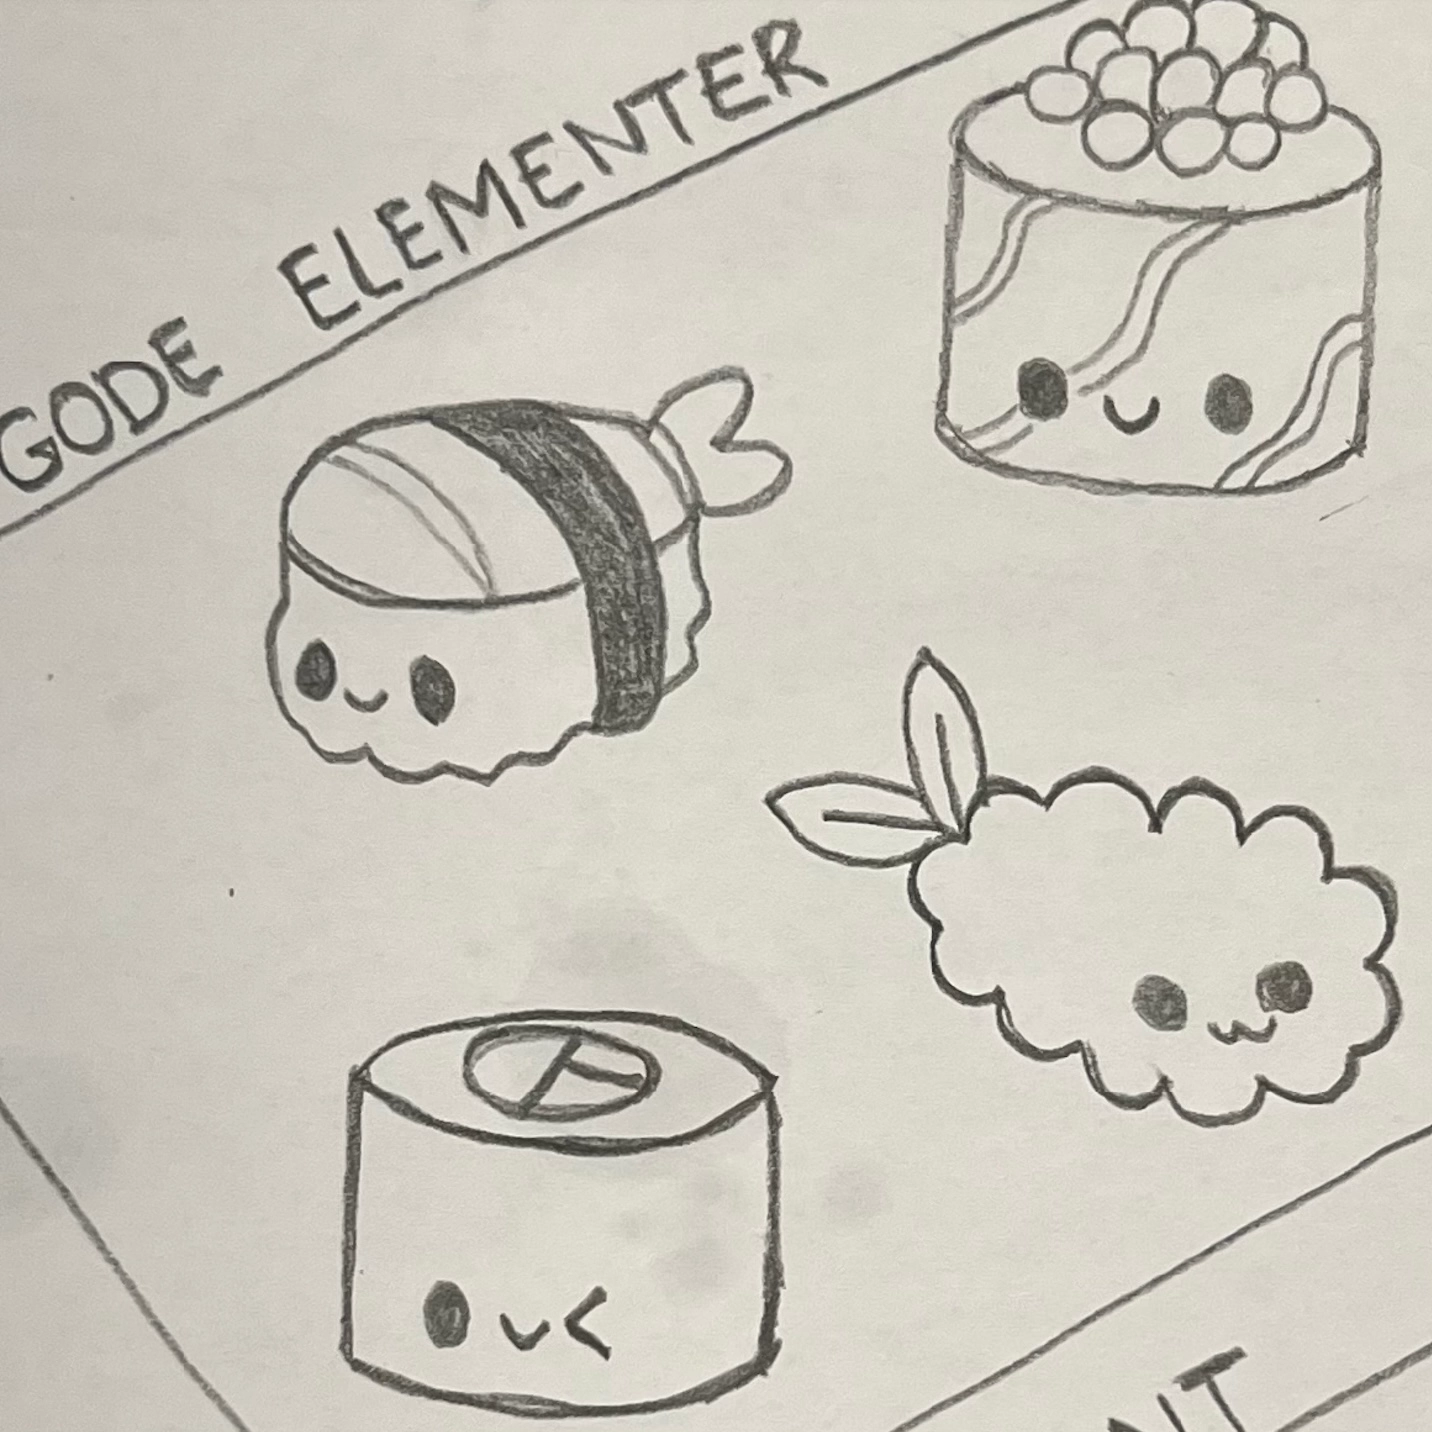 GODE ELEMENTER
NT